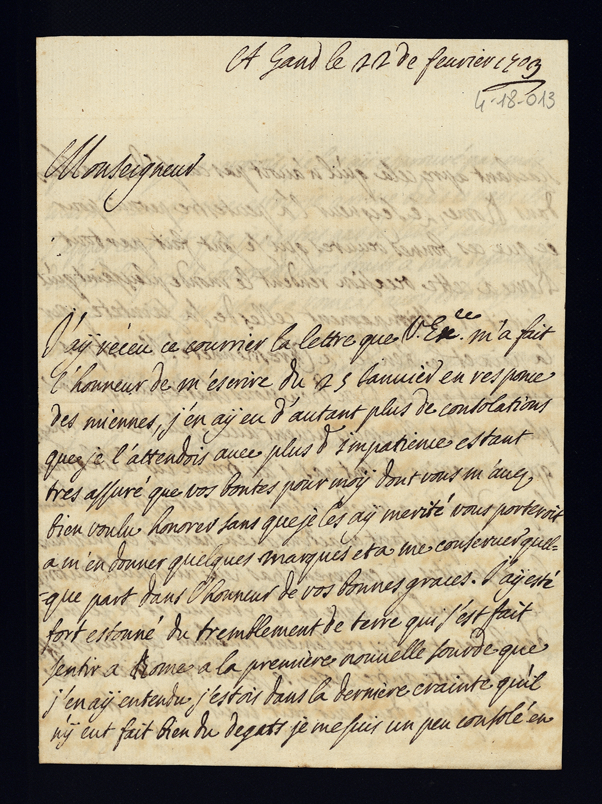 A Gand le 22 de feuvrier 1703
4-18-013
Monseigneur
J'aÿ receu ce courrier la lettre que V. Ex.ce m'a fait
l'honneur de m'escrire du 25 Janvier en responce
des miennes, j'en aÿ eu d'autant plus de consolations
que je l'attendois avec plus d'impatience estant
tres assuré que vos bontes pour moÿ dont vous m'avez
bien voulu honorer sans que je les aÿ merité vous porteroit
a m'en donner quelques marques et a me conserver quel-
-que part dans l'honneur de vos bonnes graces. J'aÿ esté
fort estonné du tremblement de terre qui s'est fait
sentir a Rome a la premiere nouvelle sourde que
j'en aÿ entendu, j'estois dans la derniere crainte qu'il
n'ÿ eut fait bien du degats je me suis un peu consolé en